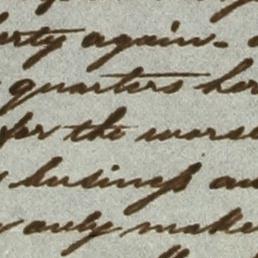 erty again -
quarters her
for the worse
business an
only make